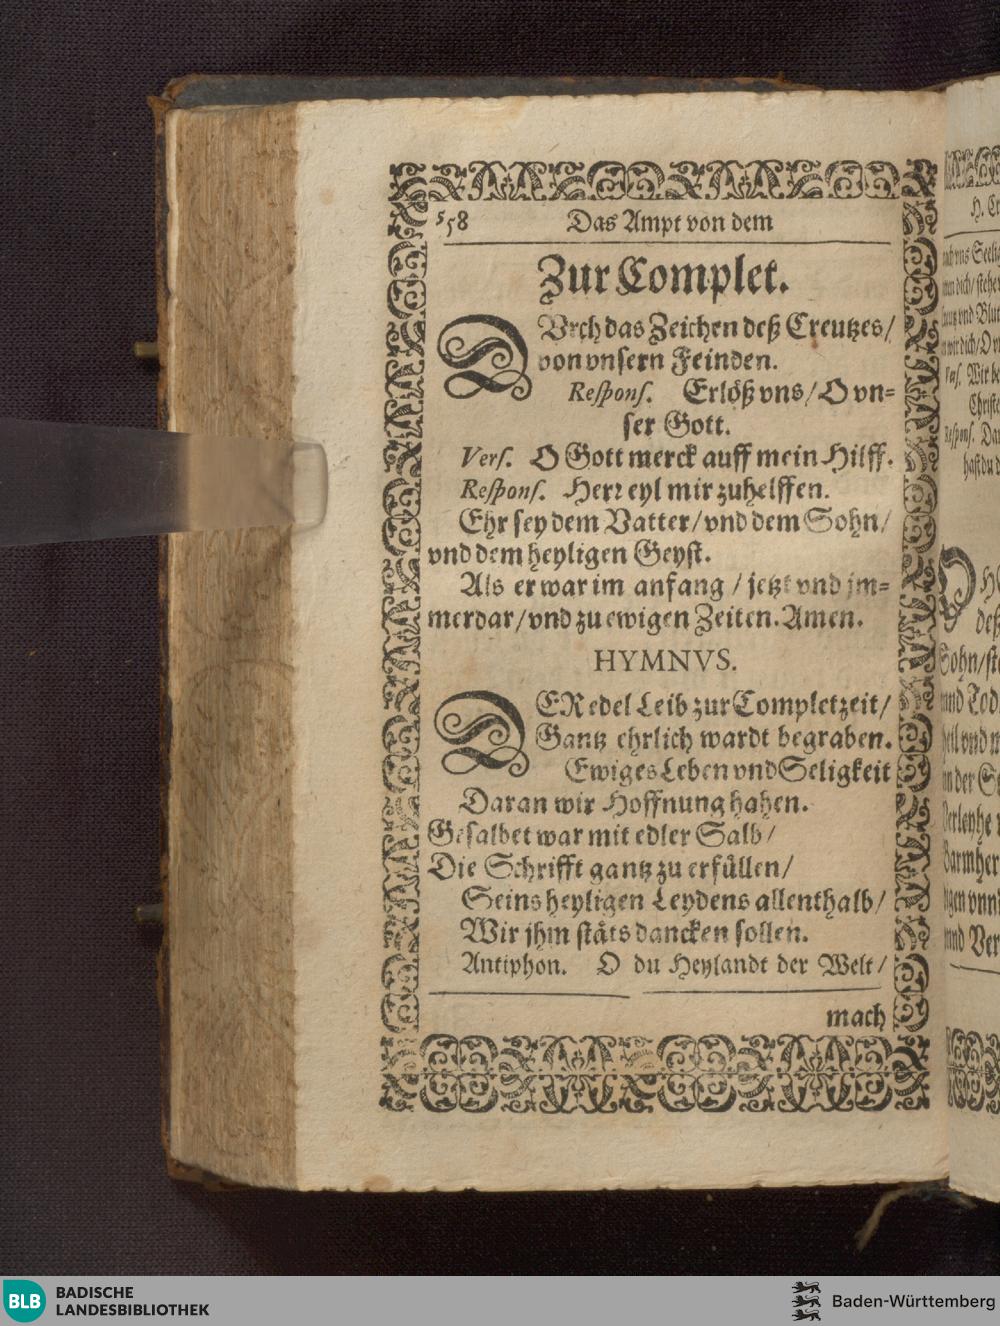 558 Das Ampt von dem
Zur Complet.
DVrch das Zeichen deß Creutzes/
von vnsern Feinden.
Respons. Erlöß vns/ O vn=
ser Gott.
Vers. O Gott merck auff mein Hilff.
Respons. Herr eyl mir zuhelffen.
Ehr sey dem Vatter/ vnd dem Sohn/
vnd dem heyligen Geyst.
Als er war im anfang / jetzt vnd jm=
merdar/ vnd zu ewigen Zeiten. Amen.
HYMNVS.
DER edel Leib zur Completzeit/
Gantz ehrlich wardt begraben.
Ewiges Leben vnd Seligkeit
Daran wir Hoffnung hahen.
Gesalbet war mit edler Salb/
Die Schrifft gantz zu erfüllen/
Seins heyligen Leydens allenthalb/
Wir jhm stäts dancken sollen.
Antiphon. O du Heylandt der Welt/
mach
H. Cr
vns Seeli
dich/ stehe
vnd Blut
wir dich/ O
Wir be
Christe
Respons. Da
hast du d
deß
Sohn/ ste
vnd Tod
heil vnd
in der Se
Verleyhe
Barmher
vnd Ver
BLB
BADISCHE
LANDESBIBLIOTHEK
Baden-Württemberg